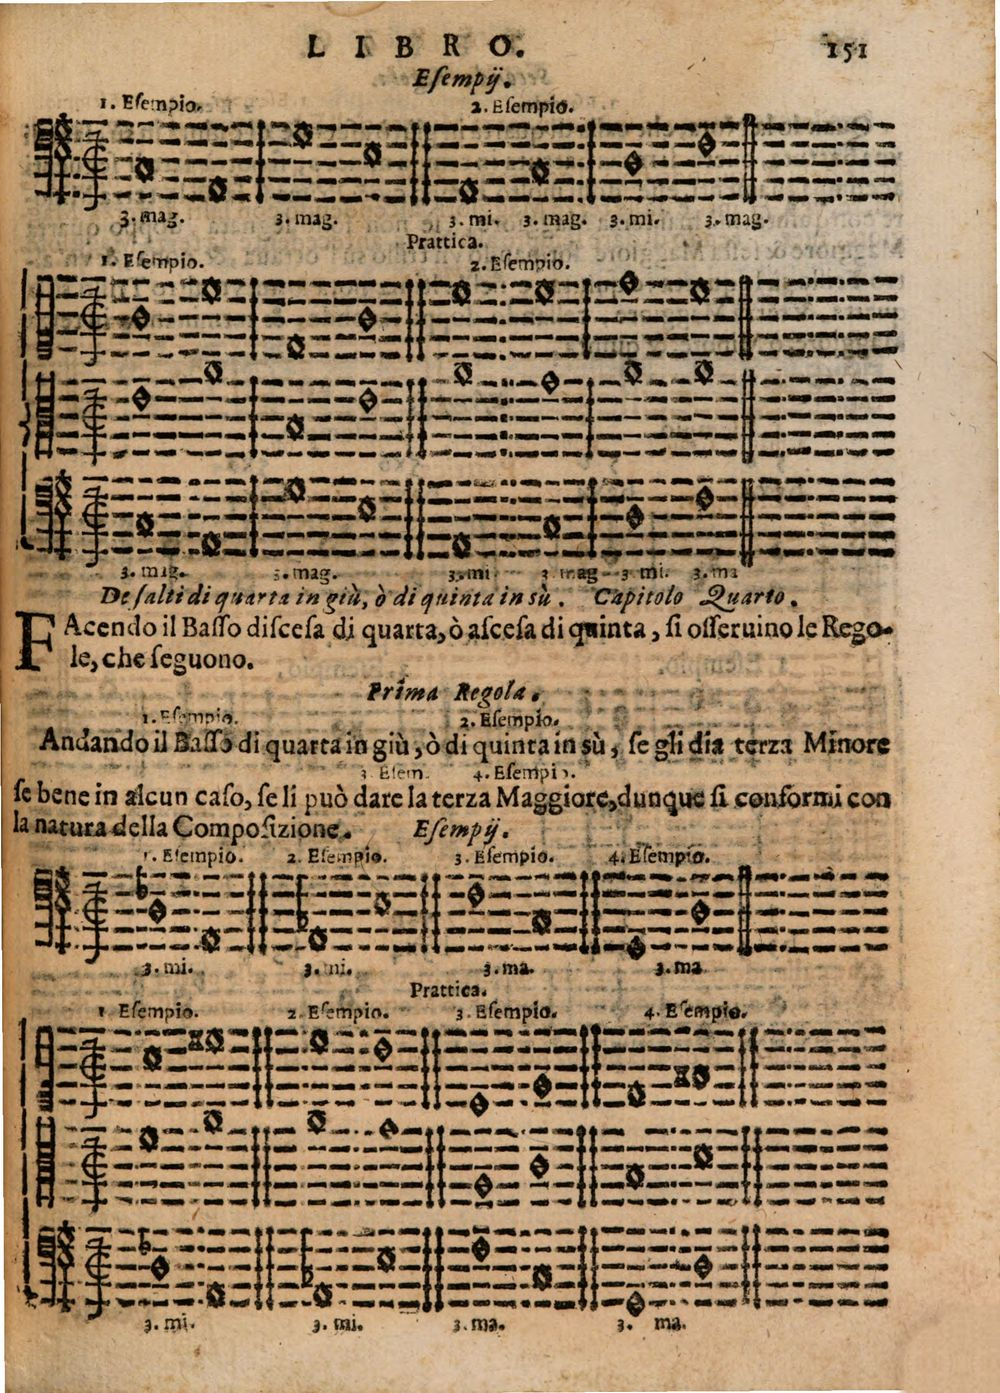 LIBRO. 151
Eſempÿ.
1. Eſempio. 2. Eſempio.
3. mag. 3. mag. 3. mi. 3. mag. 3. mi. 3. mag.
Prattica.
1. Eſempio. 2. Eſempio.
3. mag. 3. mag. 3. mi 3 mag 3. mi. 3. ma
De ſalti di quarta in giù, ò di quinta in sù. Capitolo Quarto.
FAcendo il Baſſo diſceſa di quarta, ò aſceſa di quinta, ſi oſſeruino le Rego-
le, che ſeguono.
Prima Regola.
1. Eſempio. 2. Eſempio.
Andando il Baſſo di quarta in giù, ò di quinta in sù, ſe gli dia terza Minore
3 Eſem. 4. Eſempio.
ſe bene in alcun caſo, ſe li può dare la terza Maggiore, dunque ſi conformi con
la natura della Compoſizione. Eſempÿ.
1. Eſempio. 2. Eſempio. 3. Eſempio. 4. Eſempio.
3. mi. 3. mi. 3. ma. 3. ma
Prattica.
1 Eſempio. 2 Eſempio. 3. Eſempio. 4. Eſempio.
3. mi. 3. mi. 3. ma. 3. ma.